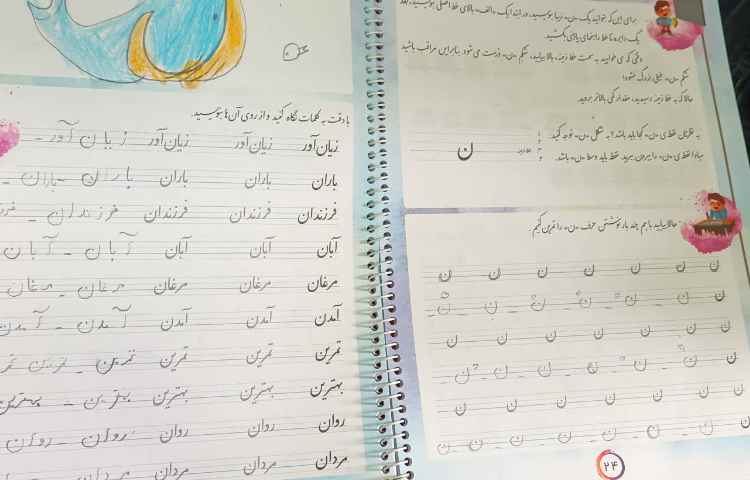 برای این‌که بتوانید یک «ن» زیبا بنویسید، در ابتدا یک «الف» بالای خط اصلی بنویسید، بعد
یک دایره تا خط راهنمای بالای بکشید.
وقتی که می‌خواهید به سمت خط زمینه بالا بیایید، شکم «ن» درست می‌شود بنابراین مراقب باشید
شکم «ن» خیلی بزرگ نشود!
حالا که به خط زمینه رسیدید، مقدار کمی بالاتر بروید.
به نظرتان نقطه‌ی «ن» کجا باید باشد؟ به شکل «ن» توجه کنید
مبادا نقطه‌ی «ن» را بیرون ببرید. نقطه باید وسط «ن» باشد.
ن
حالا بیایید با هم چند بار نوشتن حرف «ن» را تمرین کنیم.
ن ن ن ن ن ن ن
ن ن ن ن ن ن ن
ن ن ن ن ن ن ن
ن ن ن ن ن ن ن
ن ن ن ن ن ن ن
ن ن ن ن ن ن ن
۲۴
با دقت به کلمات نگاه کنید و از روی آن‌ها بنویسید.
زیان‌آور زیان‌آور زیان‌آور زیان آور -
باران باران باران باران - باران -
فرزندان فرزندان فرزندان فرزندان -
آبان آبان آبان آبان - آبان
مرغان مرغان مرغان مرغان - مرغان
آمدن آمدن آمدن آمدن - آمدن
تمرین تمرین تمرین تمرین - تمرین
بهترین بهترین بهترین بهترین - بهترین
روان روان روان روان - روان
مردان مردان مردان مردان